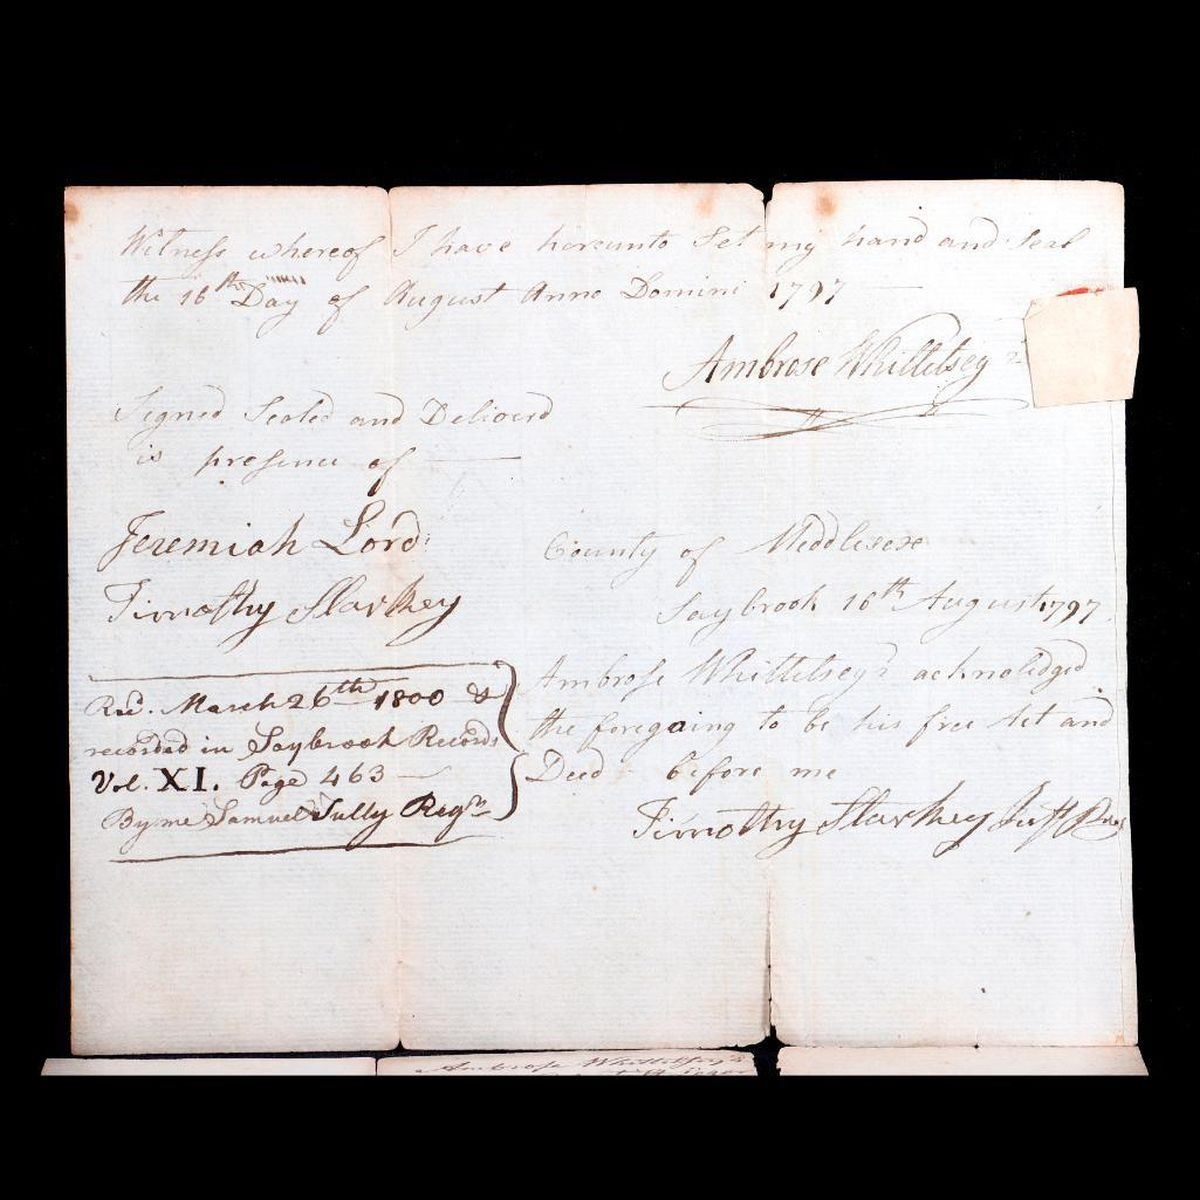 Witness whereof I have hereunto Set my hand and Seal
the 16th Day of August Anno Domini 1797
Ambrose Whittelsey 2d
Signed Sealed and Deliverd
in presence of
Jeremiah Lord
Timothy Starkey
County of Middlesex
Saybrook 16th August 1797
Ambrose Whittelsey 2d acknoledged
the foregoing to be his free Act and
Deed before me
Timothy Starkey Just Peas
Recd. March 26th 1800 &
recorded in Saybrook Records
Vol. XI. Page 463
By me Samuel Tully Regr
Ambrose Whittelsey 2d